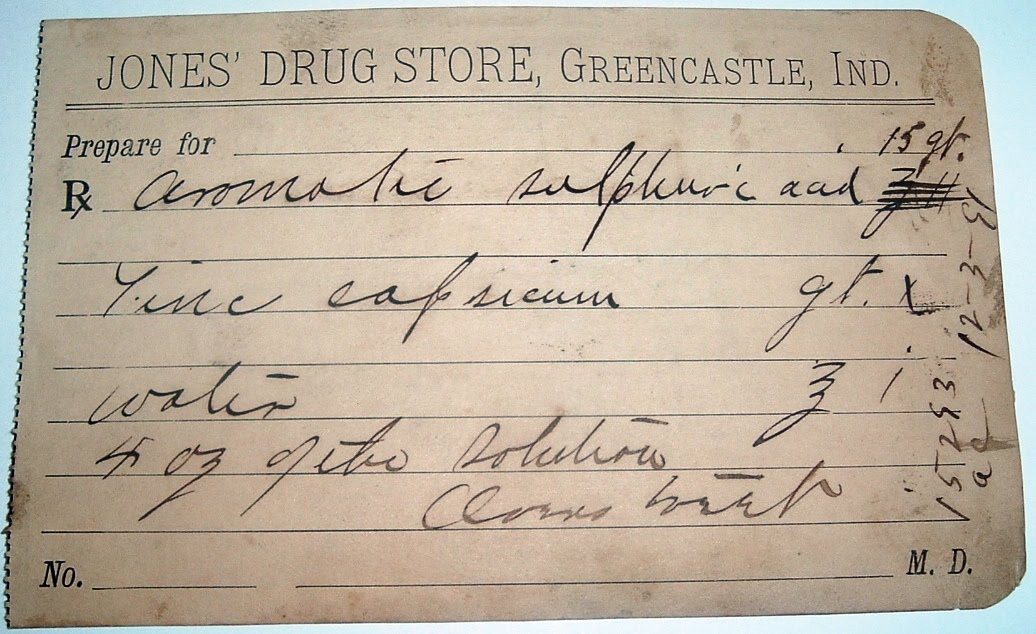 JONES' DRUG STORE, GREENCASTLE, IND.
Prepare for
15 gt.
℞ aromatic sulphuric acid
Tinc capsicum gt. x
water ʒ i
4 oz of the solution
No. M. D.
12-3-
15293